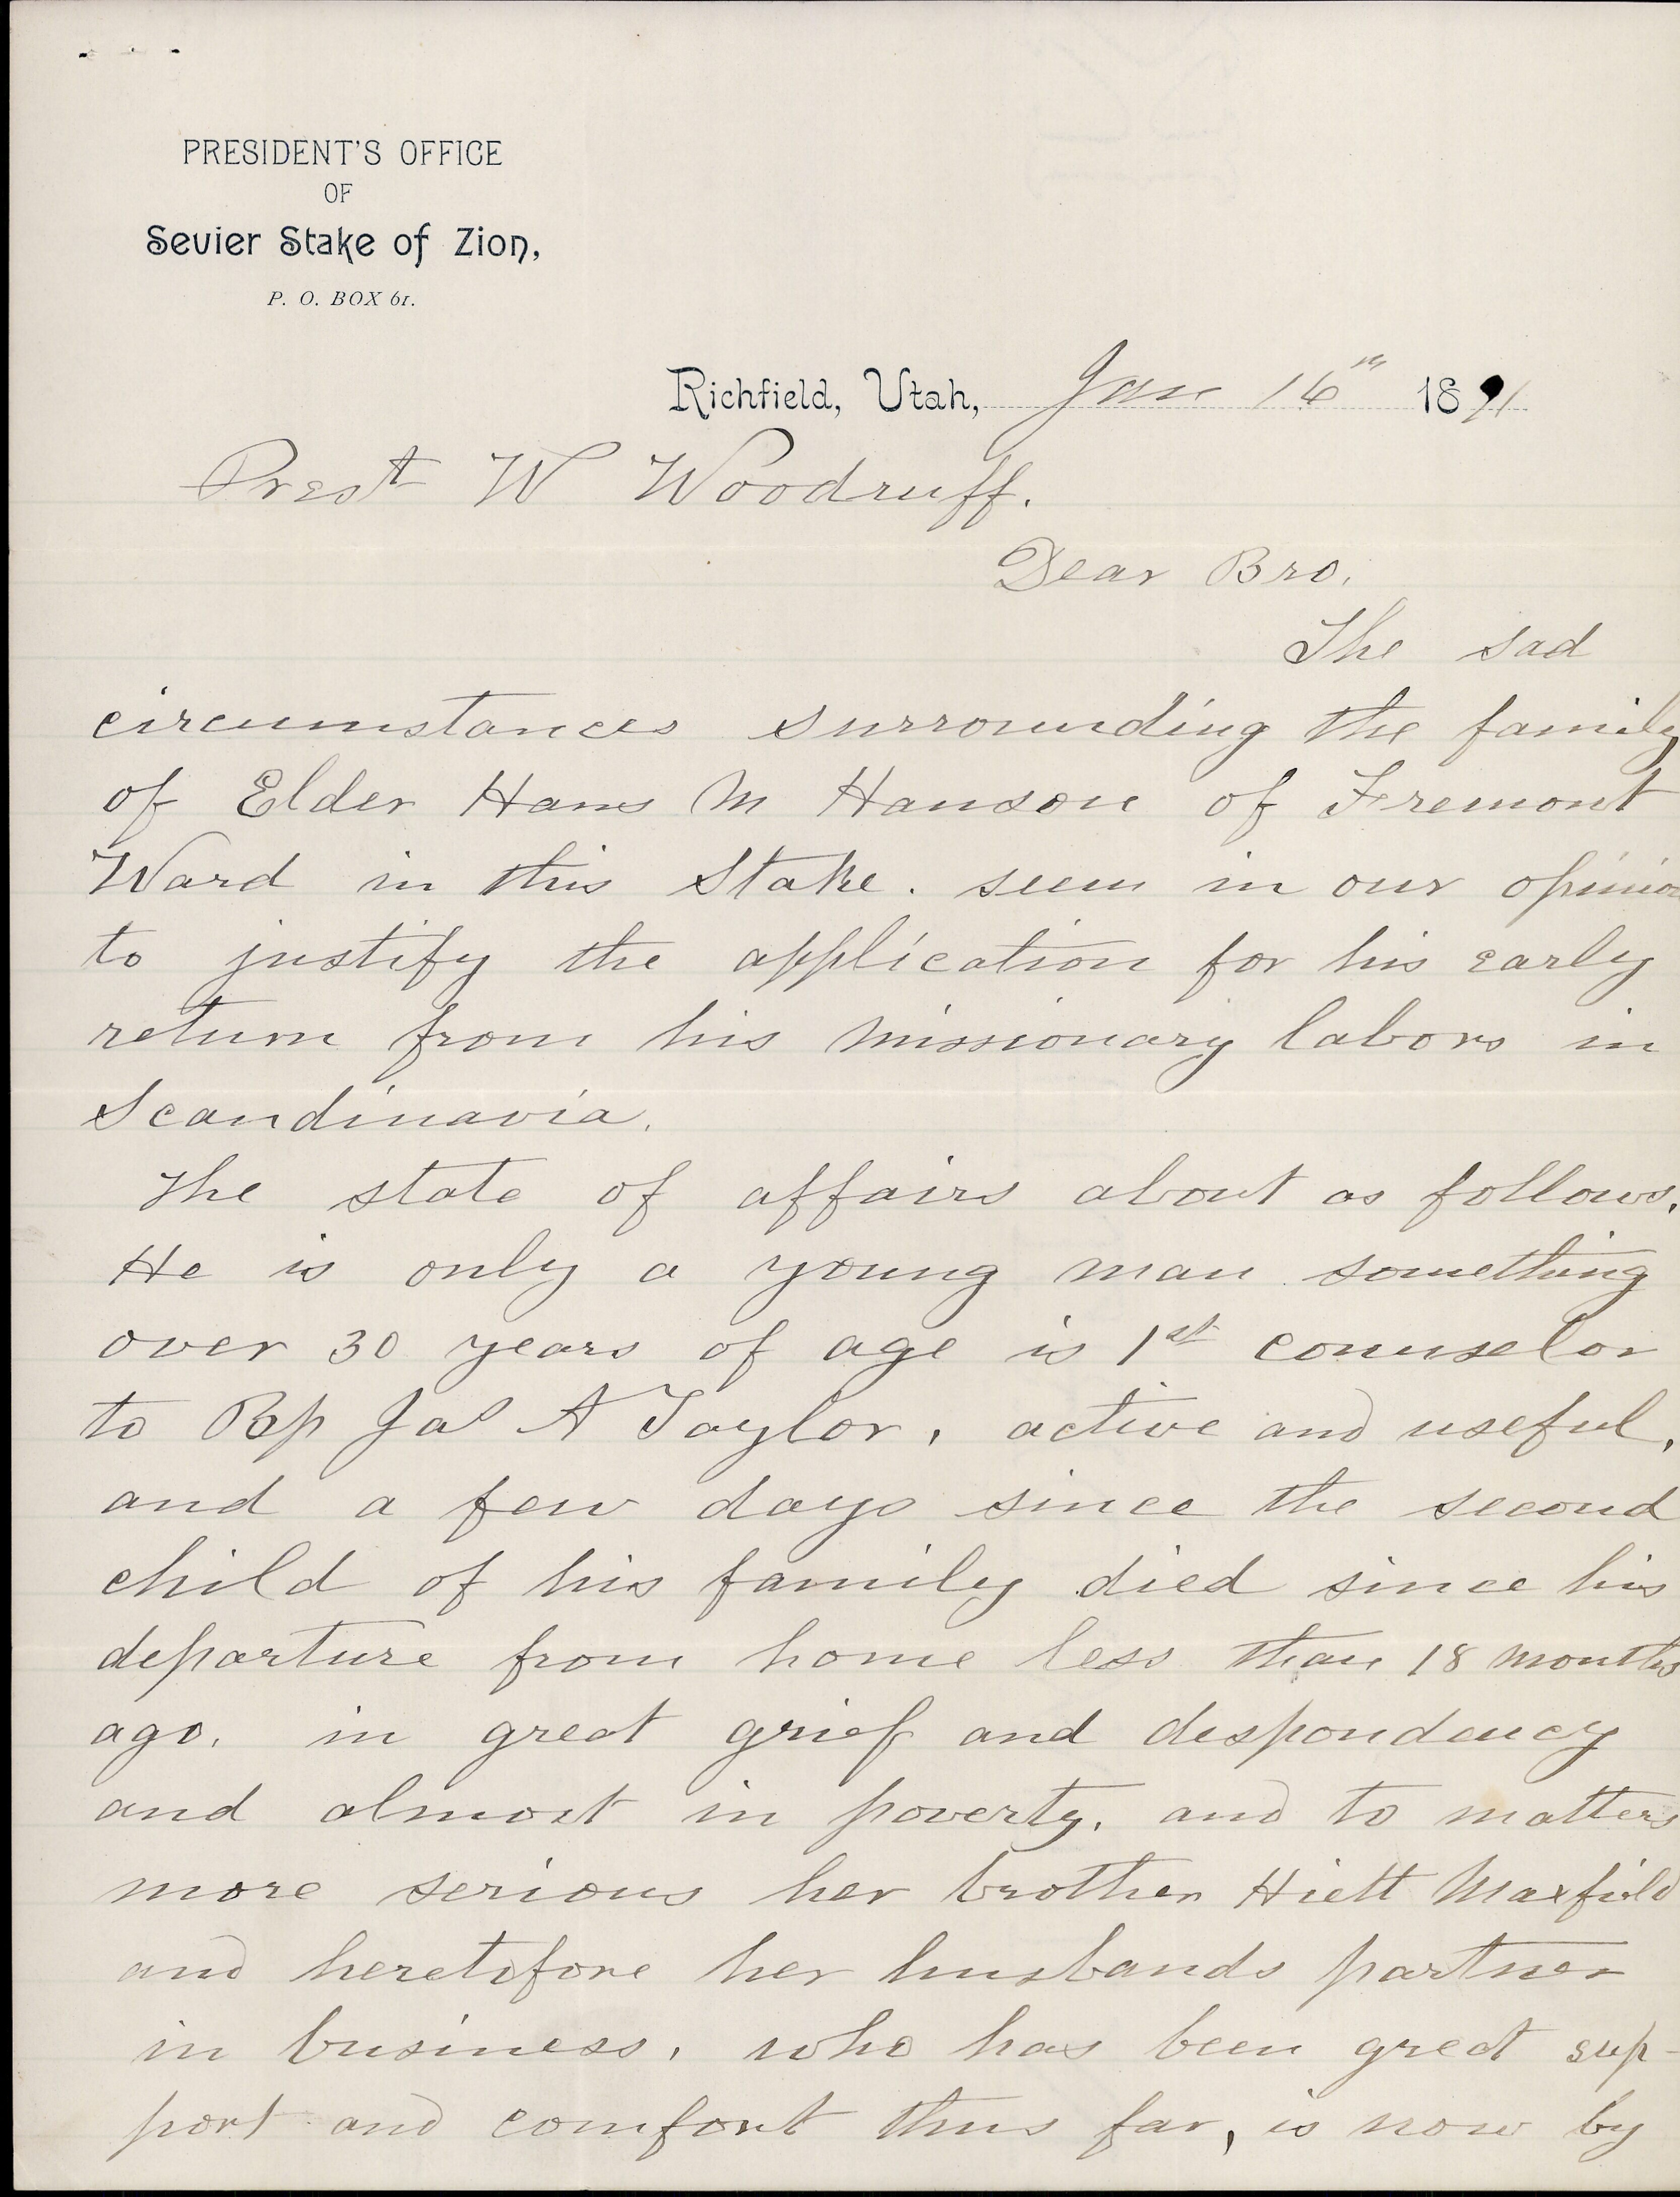 PRESIDENT'S OFFICE
OF
Sevier Stake of Zion,
P. O. BOX 61.
Richfield, Utah, Jan 16th 1891
Prest W Woodruff.
Dear Bro.
The sad
circumstances surrounding the family
of Elder Hans M Hanson of Fremont
Ward in this Stake. seem in our opinion
to justify the application for his early
return from his missionary labors in
Scandinavia.
The state of affairs about as follows.
He is only a young man something
over 30 years of age is 1st counselor
to Bp Jas A Taylor, active and useful,
and a few days since the second
child of his family died since his
departure from home less than 18 months
ago. in great grief and despondency
and almost in poverty. and to matters
more serious her brother Hiett Maxfield
and heretofore her husbands partner
in business, who has been great sup-
port and comfort thus far, is now by